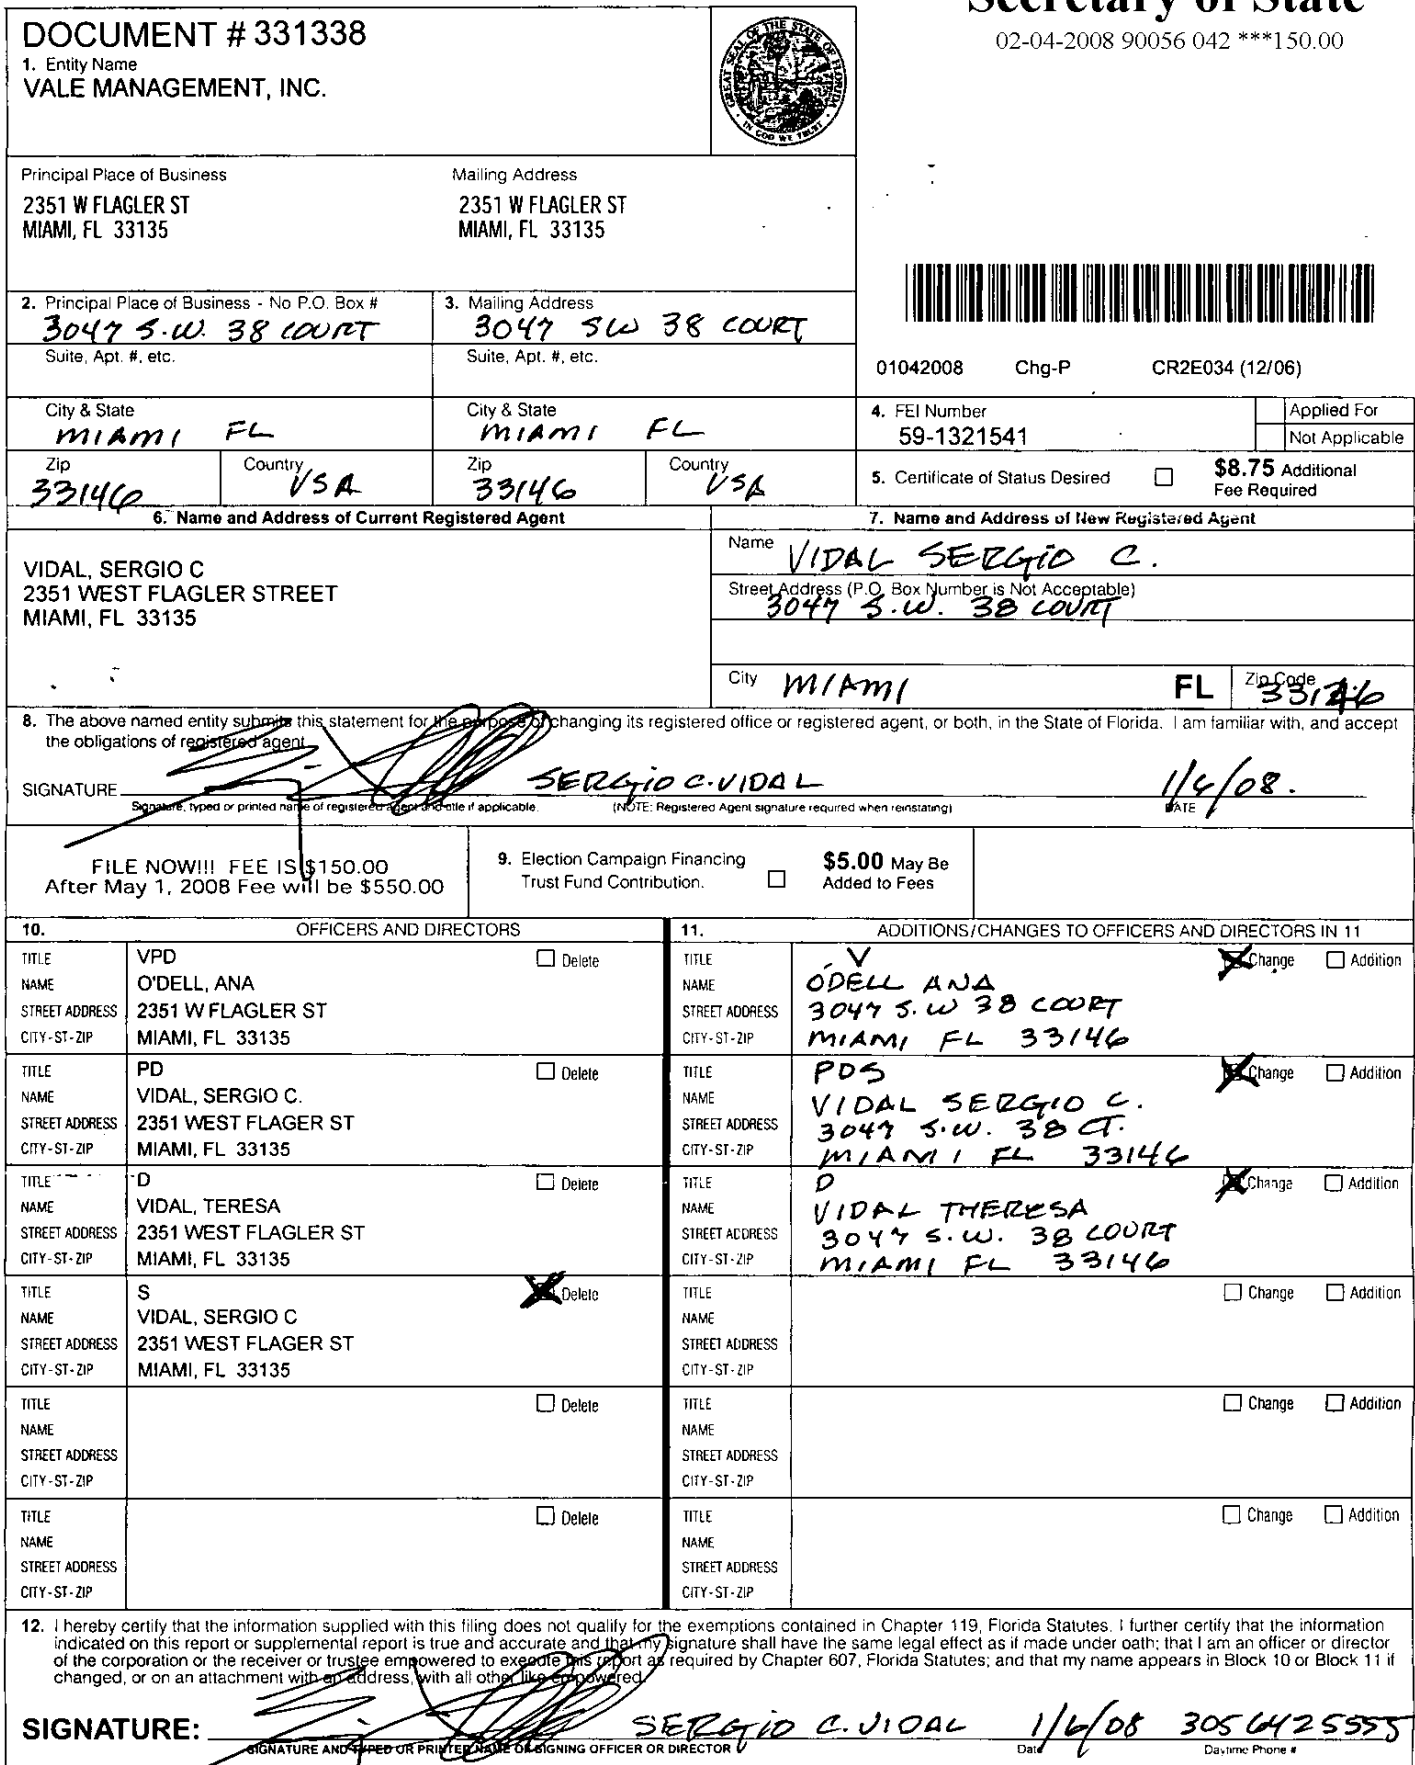 Secretary of State
02-04-2008 90056 042 ***150.00
DOCUMENT # 331338
1. Entity Name
VALE MANAGEMENT, INC.
GREAT SEAL OF THE STATE OF FLORIDA
IN GOD WE TRUST
Principal Place of Business
2351 W FLAGLER ST
MIAMI, FL 33135
Mailing Address
2351 W FLAGLER ST
MIAMI, FL 33135
2. Principal Place of Business - No P.O. Box #
3047 S.W. 38 COURT
3. Mailing Address
3047 SW 38 COURT
Suite, Apt. #, etc.
Suite, Apt. #, etc.
01042008 Chg-P CR2E034 (12/06)
City & State
MIAMI FL
City & State
MIAMI FL
4. FEI Number
59-1321541
Applied For
Not Applicable
Zip
33146
Country
USA
Zip
33146
Country
USA
5. Certificate of Status Desired
$8.75 Additional
Fee Required
6. Name and Address of Current Registered Agent
VIDAL, SERGIO C
2351 WEST FLAGLER STREET
MIAMI, FL 33135
7. Name and Address of New Registered Agent
Name VIDAL SERGIO C.
Street Address (P.O. Box Number is Not Acceptable)
3047 S.W. 38 COURT
City MIAMI FL Zip Code 33146
8. The above named entity submits this statement for the purpose of changing its registered office or registered agent, or both, in the State of Florida. I am familiar with, and accept
the obligations of registered agent.
SIGNATURE SERGIO C. VIDAL 1/6/08.
Signature, typed or printed name of registered agent and title if applicable. (NOTE: Registered Agent signature required when reinstating) DATE
FILE NOW!!! FEE IS $150.00
After May 1, 2008 Fee will be $550.00
9. Election Campaign Financing
Trust Fund Contribution.
$5.00 May Be
Added to Fees
10. OFFICERS AND DIRECTORS
11. ADDITIONS/CHANGES TO OFFICERS AND DIRECTORS IN 11
TITLE VPD Delete
NAME O'DELL, ANA
STREET ADDRESS 2351 W FLAGLER ST
CITY-ST-ZIP MIAMI, FL 33135
TITLE V Change Addition
NAME O'DELL ANA
STREET ADDRESS 3047 S.W 38 COURT
CITY-ST-ZIP MIAMI FL 33146
TITLE PD Delete
NAME VIDAL, SERGIO C.
STREET ADDRESS 2351 WEST FLAGER ST
CITY-ST-ZIP MIAMI, FL 33135
TITLE PDS Change Addition
NAME VIDAL SERGIO C.
STREET ADDRESS 3047 S.W. 38 CT.
CITY-ST-ZIP MIAMI FL 33146
TITLE D Delete
NAME VIDAL, TERESA
STREET ADDRESS 2351 WEST FLAGLER ST
CITY-ST-ZIP MIAMI, FL 33135
TITLE D Change Addition
NAME VIDAL THERESA
STREET ADDRESS 3047 S.W. 38 COURT
CITY-ST-ZIP MIAMI FL 33146
TITLE S Delete
NAME VIDAL, SERGIO C
STREET ADDRESS 2351 WEST FLAGER ST
CITY-ST-ZIP MIAMI, FL 33135
TITLE Change Addition
NAME
STREET ADDRESS
CITY-ST-ZIP
TITLE Delete
NAME
STREET ADDRESS
CITY-ST-ZIP
TITLE Change Addition
NAME
STREET ADDRESS
CITY-ST-ZIP
TITLE Delete
NAME
STREET ADDRESS
CITY-ST-ZIP
TITLE Change Addition
NAME
STREET ADDRESS
CITY-ST-ZIP
12. I hereby certify that the information supplied with this filing does not qualify for the exemptions contained in Chapter 119, Florida Statutes. I further certify that the information
indicated on this report or supplemental report is true and accurate and that my signature shall have the same legal effect as if made under oath; that I am an officer or director
of the corporation or the receiver or trustee empowered to execute this report as required by Chapter 607, Florida Statutes; and that my name appears in Block 10 or Block 11 if
changed, or on an attachment with an address, with all other like empowered.
SIGNATURE: SERGIO C. VIDAL 1/6/08 3056425555
SIGNATURE AND TYPED OR PRINTED NAME OF SIGNING OFFICER OR DIRECTOR Date Daytime Phone #